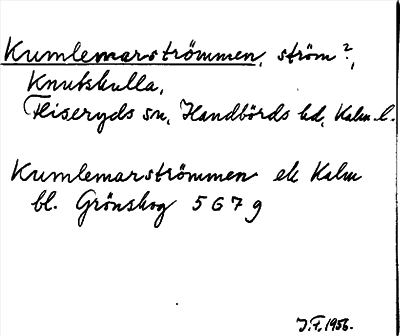 Kumlemarströmmen, ström?,
Knutskulla,
Fliseryds sn, Handbörds hd, Kalm. l.
Kumlemarströmmen ek Kalm
bl. Grönskog 5 G 7 g
J.F. 1956.